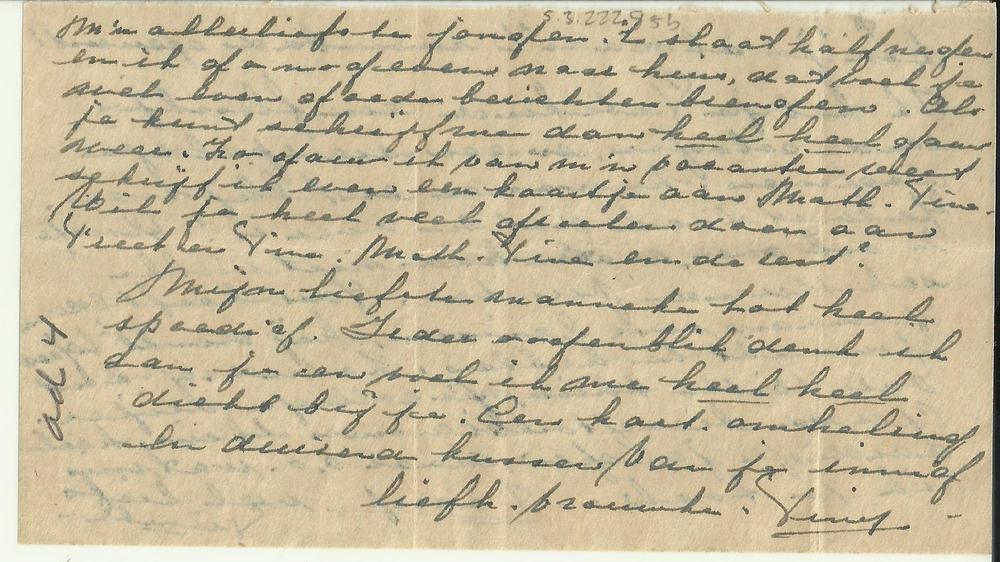 M'n allerliefste jongen. 't slaat half negen
en ik ga nog even naar huis, dat zal je
wel even goede berichten brengen. Als
je kunt schrijf me dan heel heel gauw
weer. Zo gauw ik van m'n vacantie weet
schrijf ik even een kaartje aan Math. Tine.
Wil je heel veel groeten doen aan
Treet en Tine. Math. Tine en de rest?
Mijn liefste manneke tot heel
spoedig. Ieder oogenblik denk ik
aan je en voel ik me heel heel
dicht bij je. Een hart. omhelzing
en duizend kussen van je innig
liefh. vrouwke. Tiny
ad 4